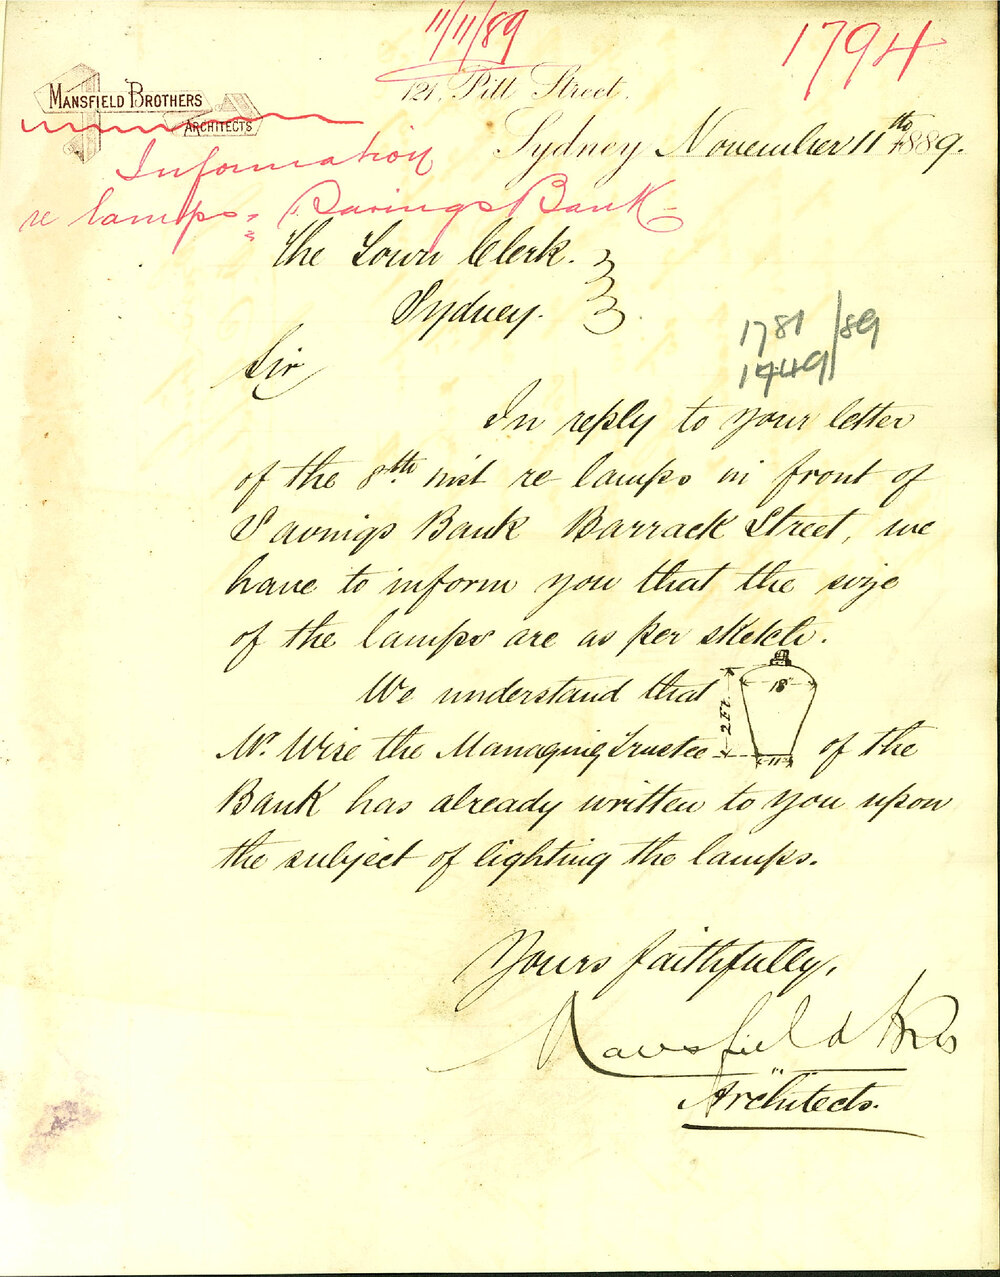 11/11/89
1794
121, Pitt Street.
MANSFIELD BROTHERS
ARCHITECTS
Sydney November 11th 1889.
Information
re lamps: Savings Bank
The Town Clerk.
Sydney.
1781/89
1449
Sir
In reply to your letter
of the 8th. inst re lamps in front of
Savings Bank Barrack Street, we
have to inform you that the size
of the lamps are as per sketch.
We understand that
18"
2 Ft.
11"
Mr. Wise the Managing Trustee of the
Bank has already written to you upon
the subject of lighting the lamps.
Yours faithfully,
Mansfield Bros
Architects.